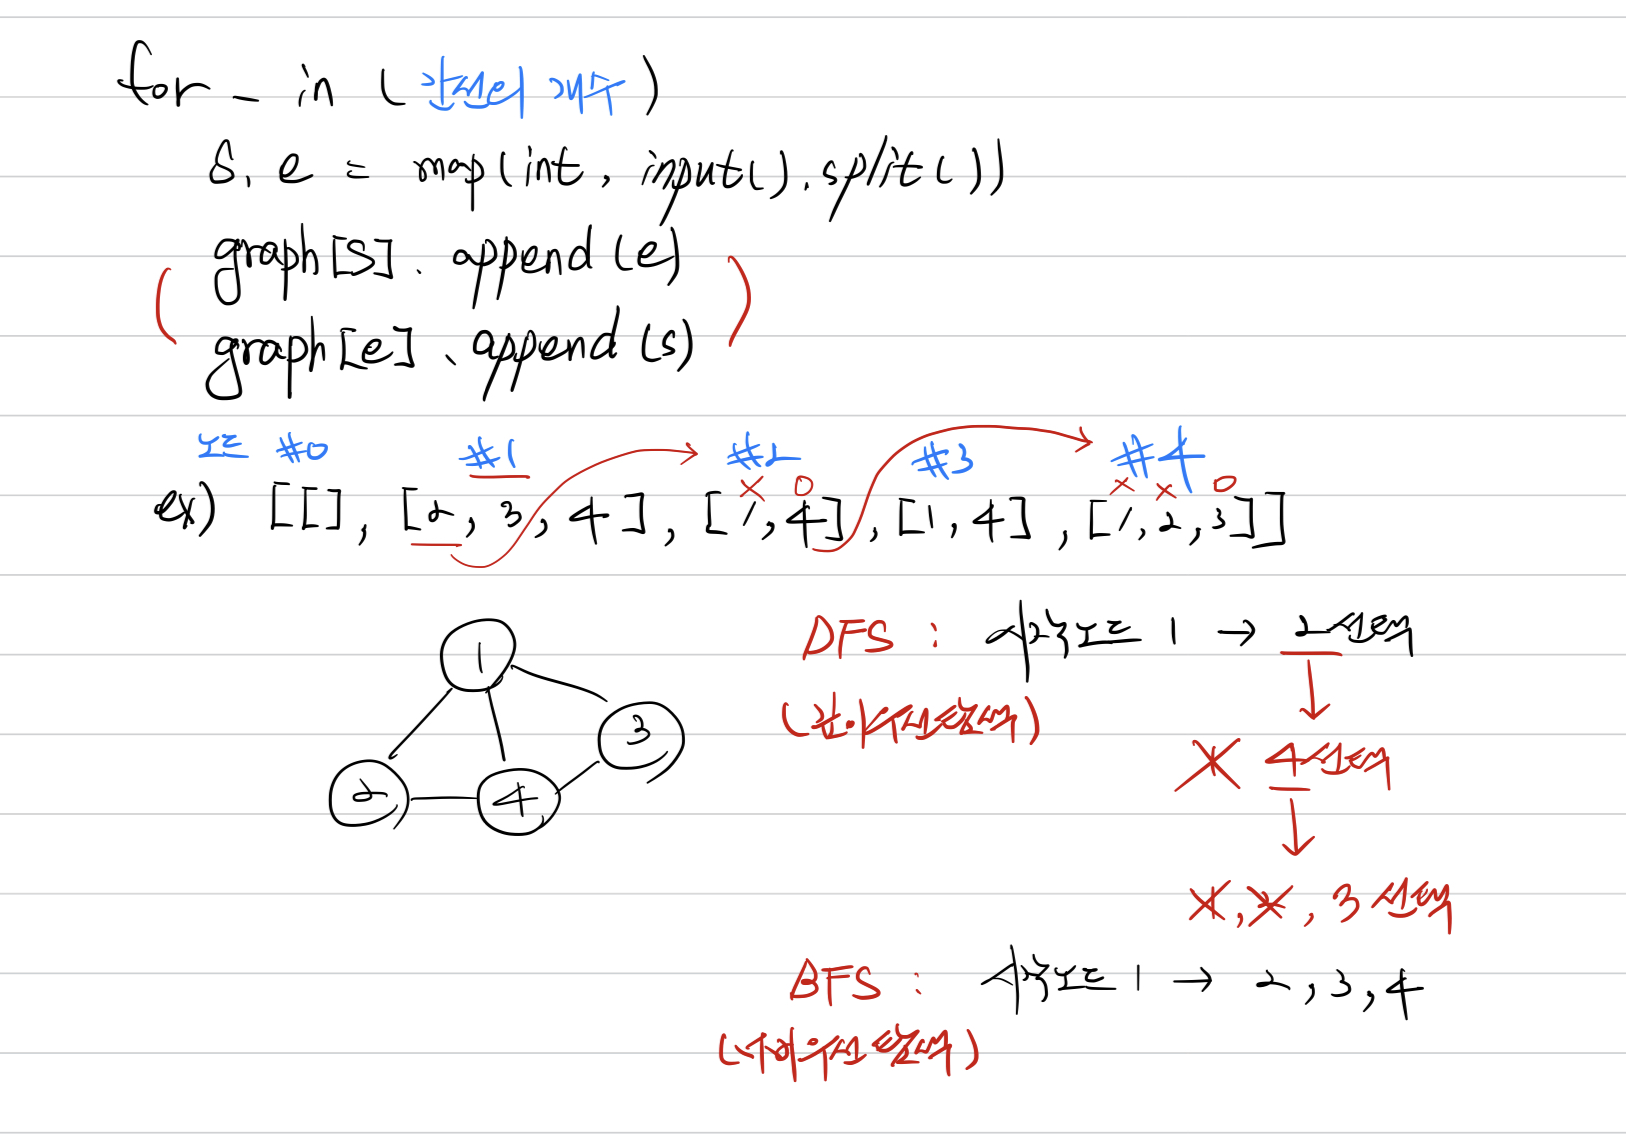 for _ in (간선의 개수)
s, e = map(int, input().split())
graph[s].append(e)
(graph[e].append(s))
노드 #0 #1 #2 #3 #4
x o x x o
ex) [[], [2, 3, 4], [1, 4], [1, 4], [1, 2, 3]]
1
3
2 4
DFS : 시작노드 1 → 2선택
(깊이우선탐색)
1 4선택
1, 2, 3 선택
BFS : 시작노드 1 → 2, 3, 4
(너비우선탐색)